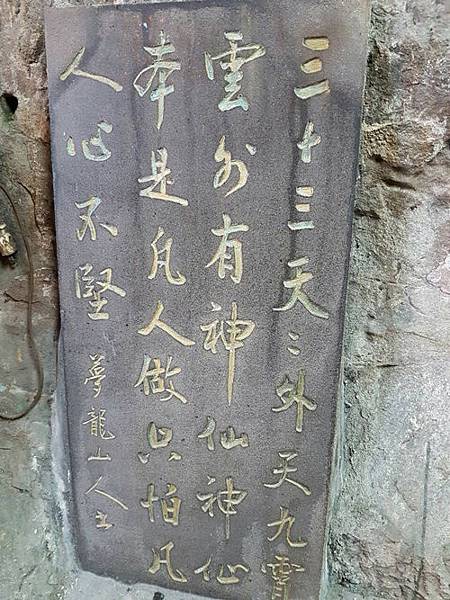 三十三天〻外天九霄
雲外有神仙神仙
本是凡人做只怕凡
人心不堅
夢龍山人書